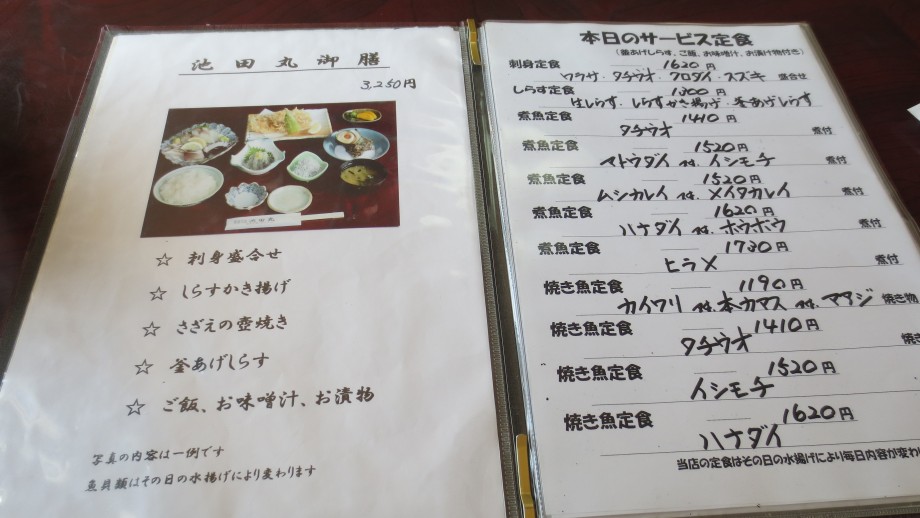 池田丸御膳
3,250円
☆ 刺身盛合せ
☆ しらすかき揚げ
☆ さざえの壺焼き
☆ 釜あげしらす
☆ ご飯、お味噌汁、お漬物
写真の内容は一例です
魚貝類はその日の水揚げにより変わります
本日のサービス定食
(釜あげしらす、ご飯、お味噌汁、お漬け物付き)
刺身定食 1620円
ワラサ・タチウオ・クロダイ・スズキ 盛合せ
しらす定食 1300円
生しらす・しらすかき揚げ・釜あげしらす
煮魚定食 1410円
タチウオ 煮付
煮魚定食 1520円
マトウダイ or イシモチ 煮付
煮魚定食 1520円
ムシカレイ or メイタカレイ 煮付
煮魚定食 1620円
ハナダイ or ホウボウ 煮付
煮魚定食 1730円
ヒラメ 煮付
焼き魚定食 1190円
カイワリ or 本カマス or マアジ 焼き物
焼き魚定食 1410円
タチウオ 焼き
焼き魚定食 1520円
イシモチ
焼き魚定食 1620円
ハナダイ
当店の定食はその日の水揚げにより毎日内容が変わ